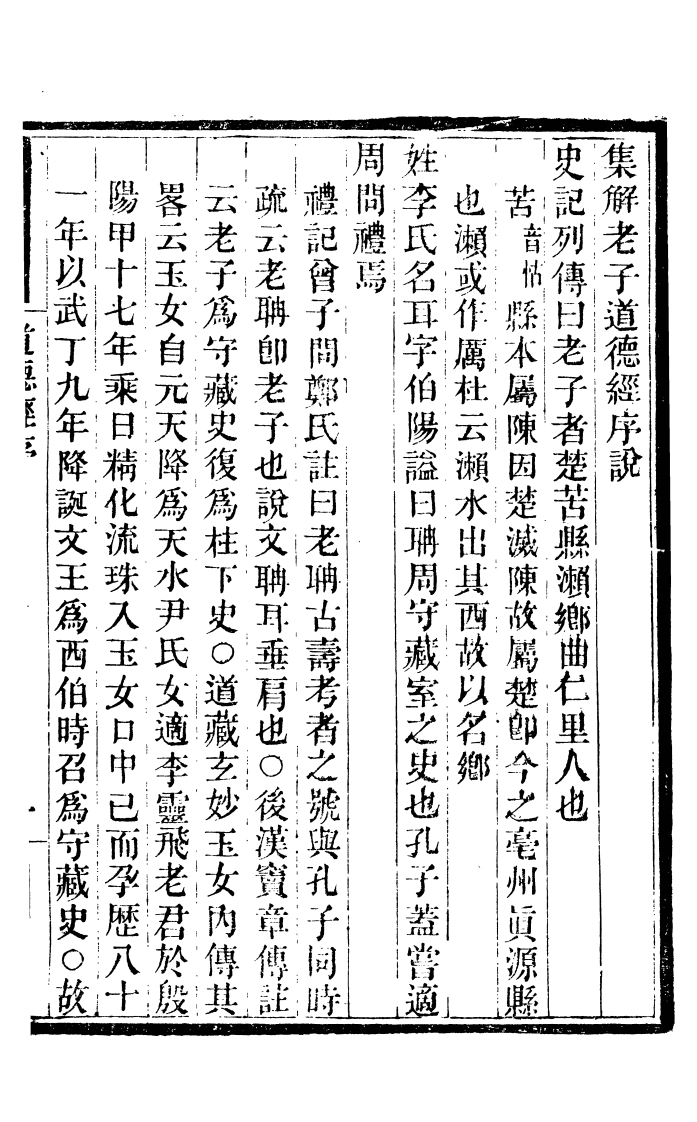 集解老子道德經序說
史記列傳曰老子者楚苦縣瀨鄉曲仁里人也
苦音怙縣本屬陳因楚滅陳故屬楚卽今之亳州眞源縣
也瀨或作厲杜云瀨水出其西故以名鄉
姓李氏名耳字伯陽謚曰聃周守藏室之史也孔子蓋嘗適
周問禮焉
禮記曾子問鄭氏註曰老聃古壽考者之號與孔子同時
疏云老聃卽老子也說文聃耳垂肩也○後漢竇章傳註
云老子爲守藏史復爲柱下史○道藏玄妙玉女內傳其
畧云玉女自元天降爲天水尹氏女適李靈飛老君於殷
陽甲十七年乘日精化流珠入玉女口中已而孕歷八十
一年以武丁九年降誕文王爲西伯時召爲守藏史○故
道德經序
一